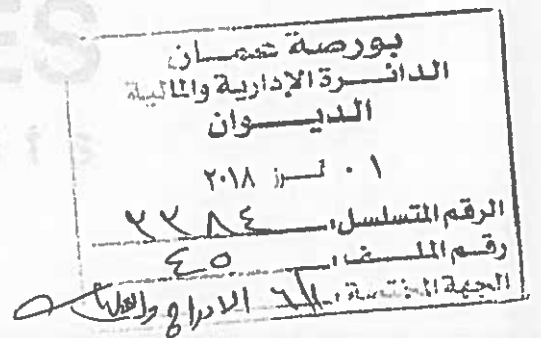 بورصة عمان
الدائرة الإدارية والمالية
الديوان
٠١ تموز ٢٠١٨
الرقم المتسلسل:
رقم الملف: ٤٥
الجهة المختصة: الادراج